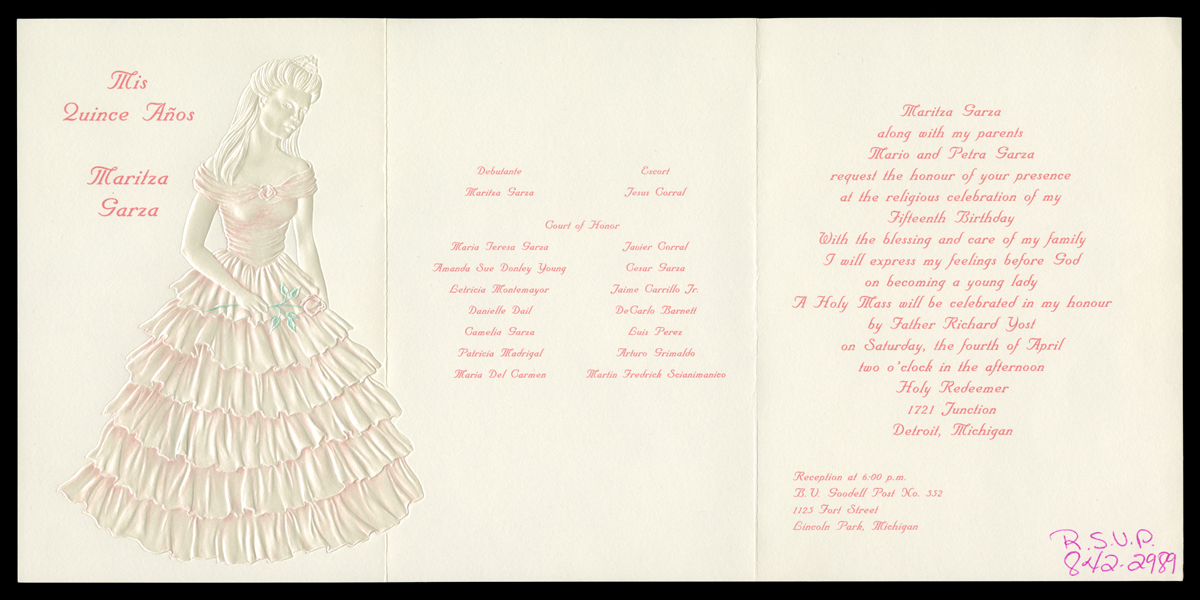 Mis
Quince Años
Maritza
Garza
Debutante Escort
Maritza Garza Jesus Corral
Court of Honor
Maria Teresa Garza Javier Corral
Amanda Sue Donley Young Cesar Garza
Letricia Montemayor Jaime Carrillo Jr.
Danielle Dail DeCarlo Barnett
Camelia Garza Luis Perez
Patricia Madrigal Arturo Grimaldo
Maria Del Carmen Martin Fredrick Scianimanico
Maritza Garza
along with my parents
Mario and Petra Garza
request the honour of your presence
at the religious celebration of my
Fifteenth Birthday
With the blessing and care of my family
I will express my feelings before God
on becoming a young lady
A Holy Mass will be celebrated in my honour
by Father Richard Yost
on Saturday, the fourth of April
two o'clock in the afternoon
Holy Redeemer
1721 Junction
Detroit, Michigan
Reception at 6:00 p.m.
B.V. Goodell Post No. 352
1125 Fort Street
Lincoln Park, Michigan
R.S.V.P.
842-2989